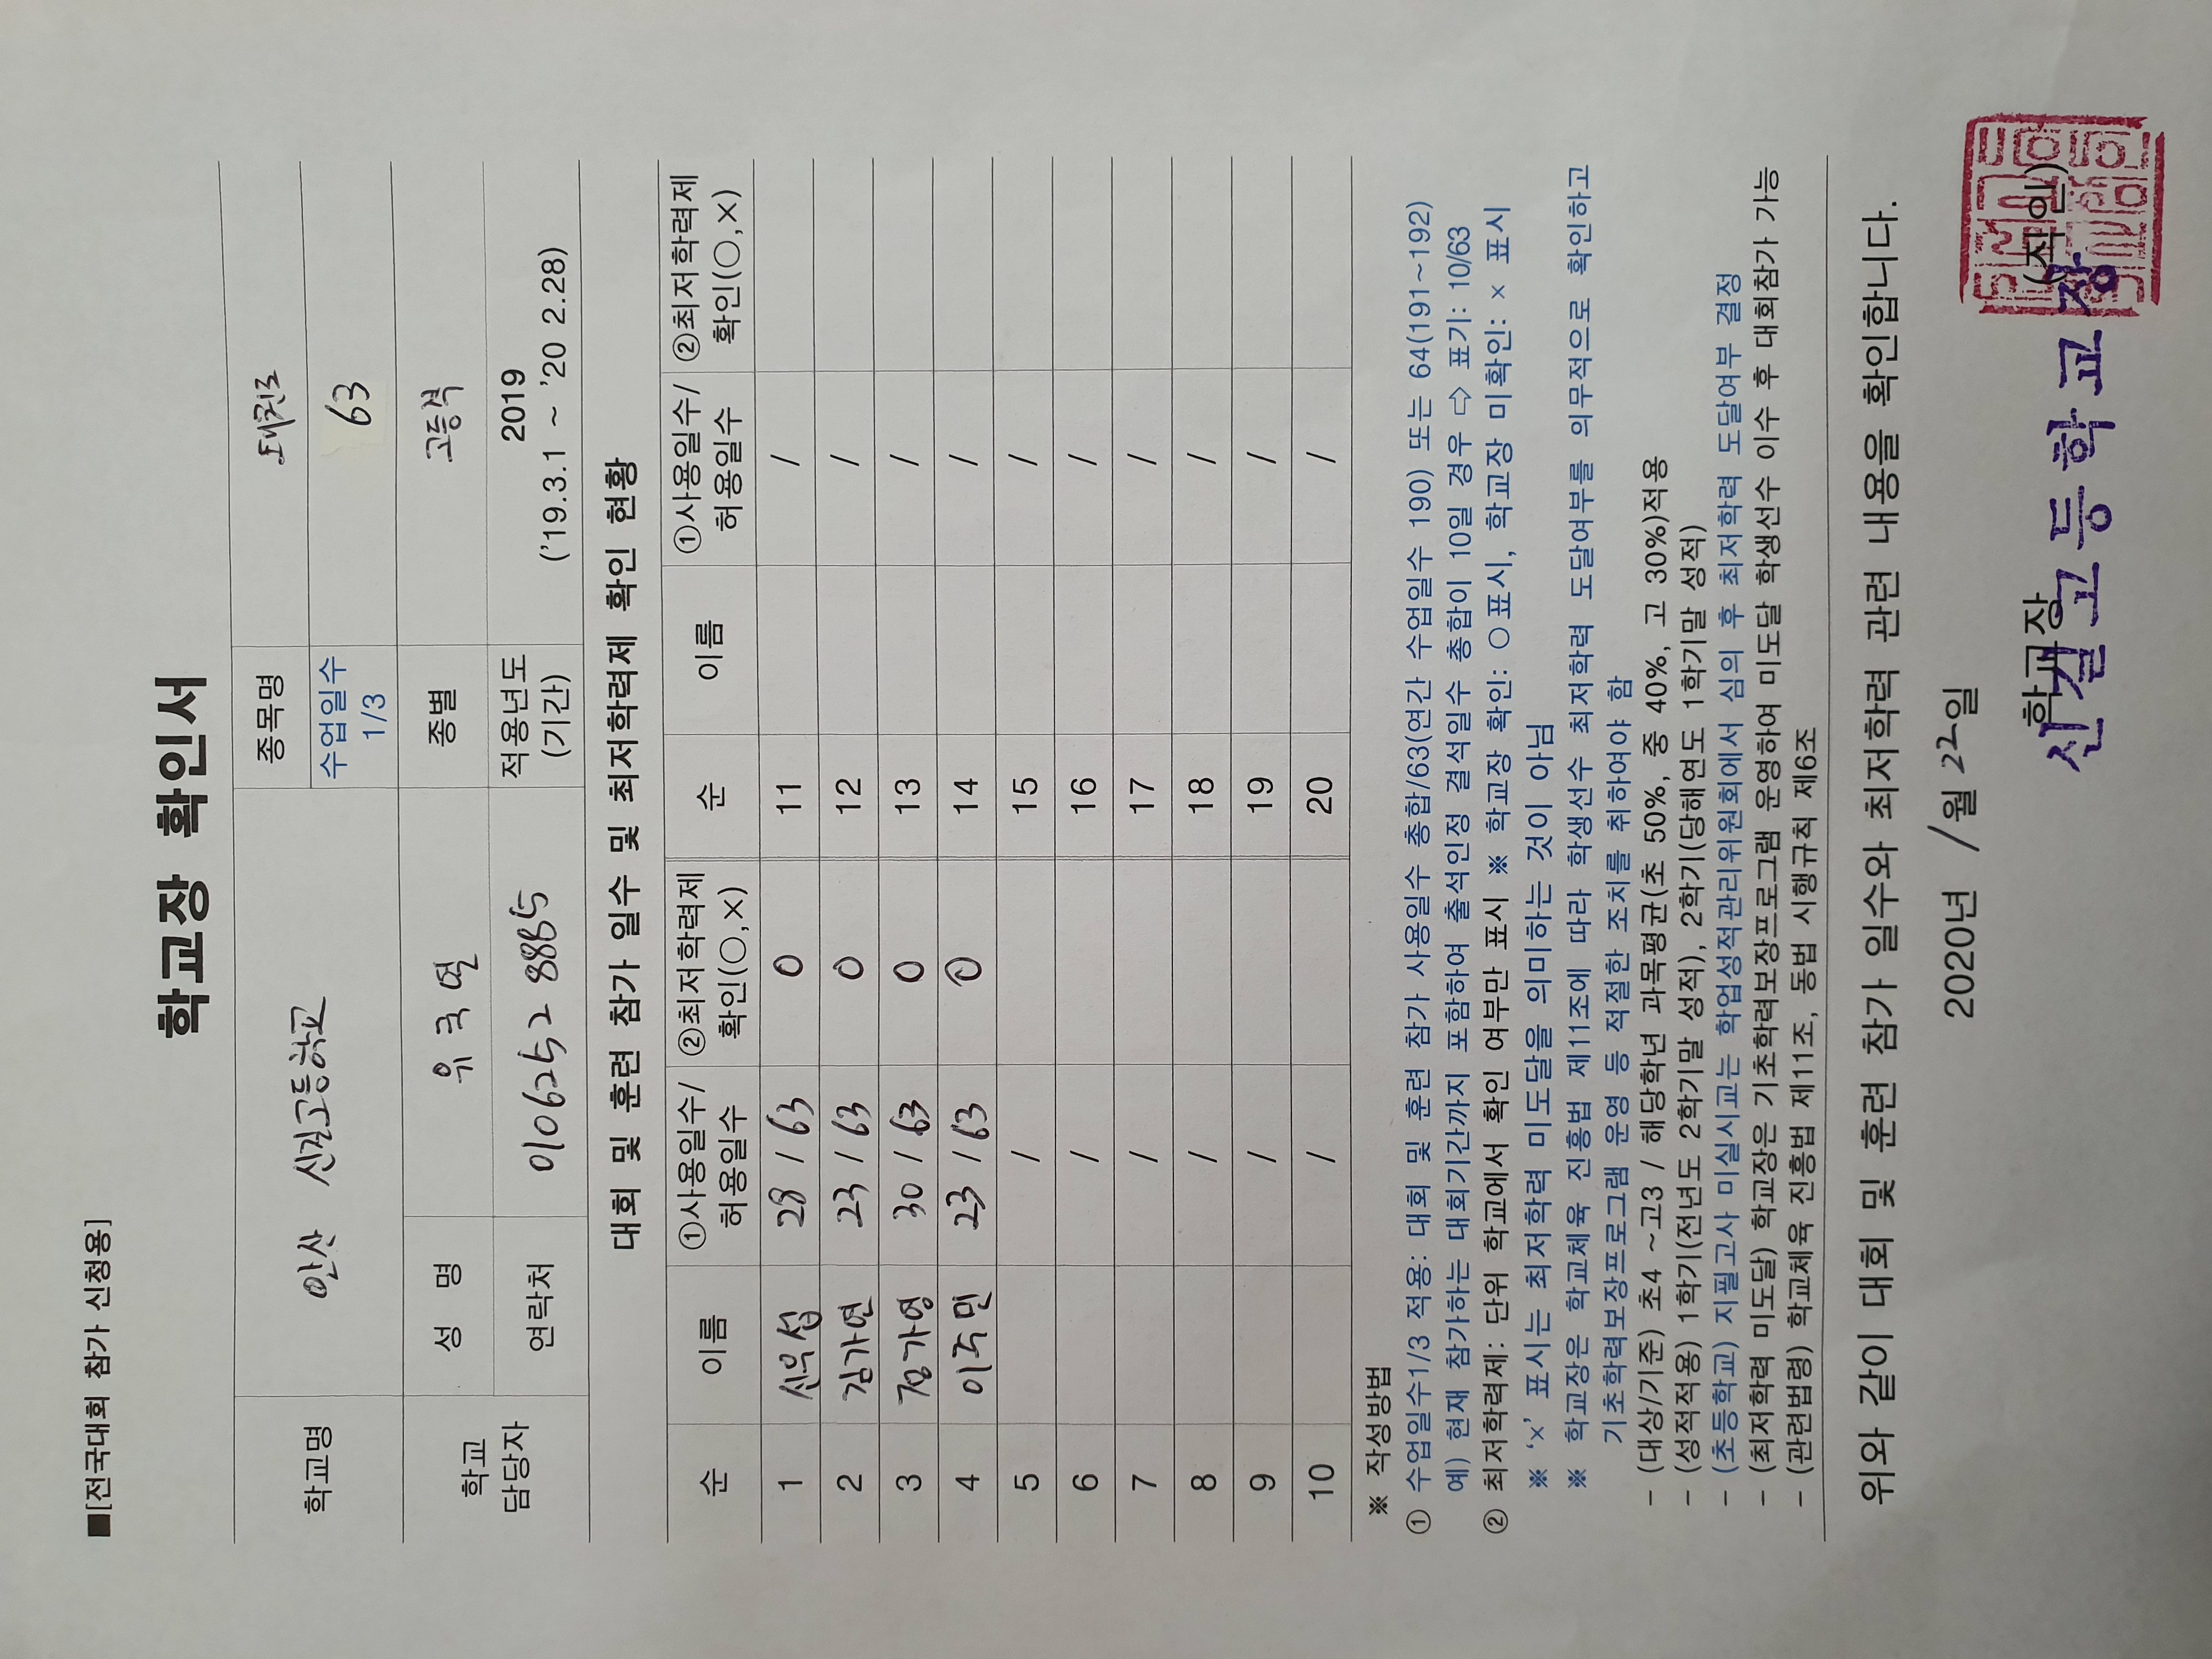 ■[전국대회 참가 신청용]
학교장 확인서
학교명 안산 신길고등학교 종목명 태권도
수업일수 1/3 63
학교 담당자 성 명 유국열 종별 고등척
연락처 01062528885 적용년도 (기간) 2019 ('19.3.1 ~ '20 2.28)
대회 및 훈련 참가 일수 및 최저학력제 확인 현황
순 이름 ①사용일수/허용일수 ②최저학력제 확인(○,×) 순 이름 ①사용일수/허용일수 ②최저학력제 확인(○,×)
1 신의섭 28 / 63 0 11 /
2 김가연 23 / 63 0 12 /
3 김가영 30 / 63 0 13 /
4 이주민 23 / 63 0 14 /
5 / 15 /
6 / 16 /
7 / 17 /
8 / 18 /
9 / 19 /
10 / 20 /
※ 작성방법
① 수업일수1/3 적용: 대회 및 훈련 참가 사용일수 총합/63(연간 수업일수 190) 또는 64(191~192)
예) 현재 참가하는 대회기간까지 포함하여 출석인정 결석일수 총합이 10일 경우 ⇨ 표기: 10/63
② 최저학력제: 단위 학교에서 확인 여부만 표시 ※ 학교장 확인: ○표시, 학교장 미확인: × 표시
※ ‘×’ 표시는 최저학력 미도달을 의미하는 것이 아님
※ 학교장은 학교체육 진흥법 제11조에 따라 학생선수 최저학력 도달여부를 의무적으로 확인하고
기초학력보장프로그램 운영 등 적절한 조치를 취하여야 함
- (대상/기준) 초4 ~고3 / 해당학년 과목평균(초 50%, 중 40%, 고 30%)적용
- (성적적용) 1학기(전년도 2학기말 성적), 2학기(당해연도 1학기말 성적)
- (초등학교) 지필고사 미실시교는 학업성적관리위원회에서 심의 후 최저학력 도달여부 결정
- (최저학력 미도달) 학교장은 기초학력보장프로그램 운영하여 미도달 학생선수 이수 후 대회참가 가능
- (관련법령) 학교체육 진흥법 제11조, 동법 시행규칙 제6조
위와 같이 대회 및 훈련 참가 일수와 최저학력 관련 내용을 확인합니다.
2020년 1월 22일
학교장 (직인)
신길고등학교장